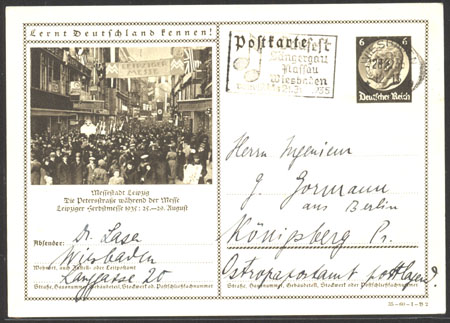 Lernt Deutschland kennen!
Messestadt Leipzig
Die Petersstraße während der Messe
Leipziger Herbstmesse 1935: 25.–29. August
Absender: Dr. Laser
Wiesbaden
Wohnort, auch Zustell- oder Leitpostamt
Langgasse 20
Straße, Hausnummer, Gebäudeteil, Stockwerk od. Postschließfachnummer
Postkarte
Sängergau
Nassau
Wiesbaden
6 6
Deutsches Reich
Herrn Ingenieur
G. Gormann
aus Berlin
Königsberg Pr.
Ostpropapostamt postlagernd.
Straße, Hausnummer, Gebäudeteil, Stockwerk oder Postschließfachnummer